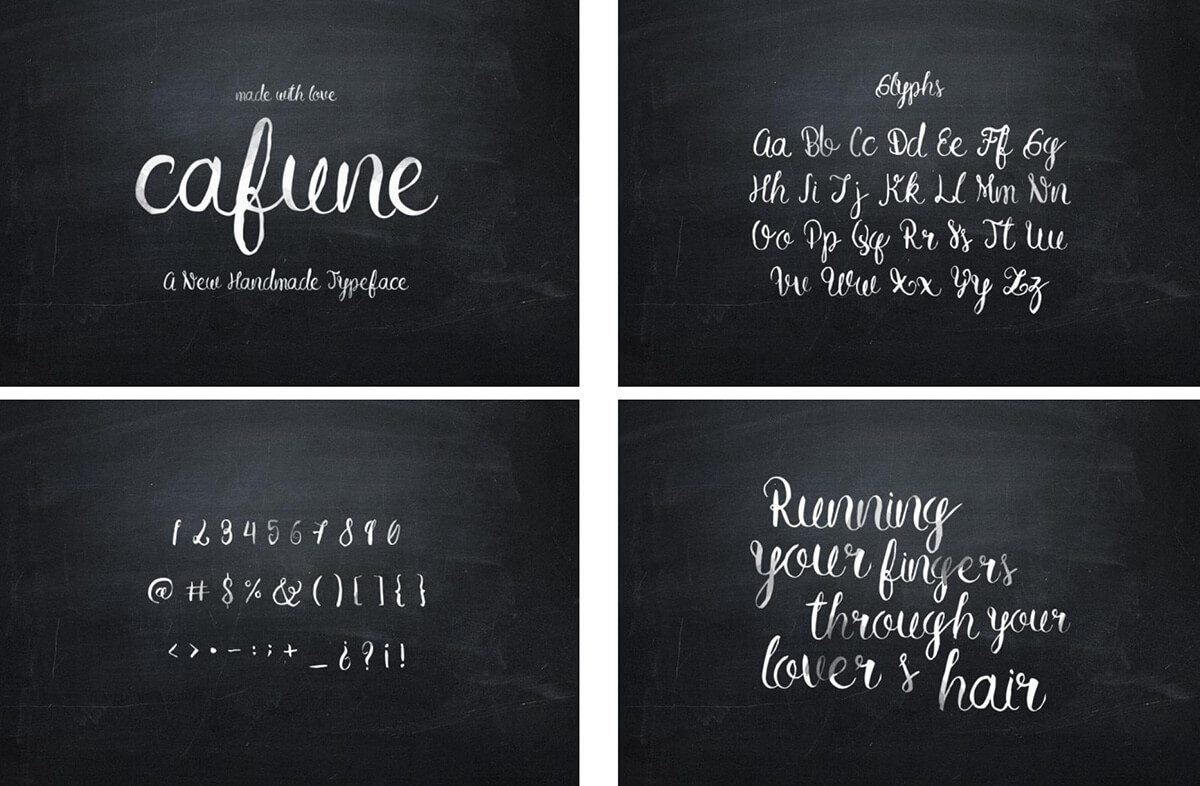 made with love
cafune
A New Handmade Typeface
Glyphs
Aa Bb Cc Dd Ee Ff Gg
Hh Ii Jj Kk Ll Mm Nn
Oo Pp Qq Rr Ss Tt Uu
Vv Ww Xx Yy Zz
1 2 3 4 5 6 7 8 9 0
@ # $ % & ( ) [ ] { }
< > • - : ; + _ ¿ ? ¡ !
Running
your fingers
through your
lover s hair